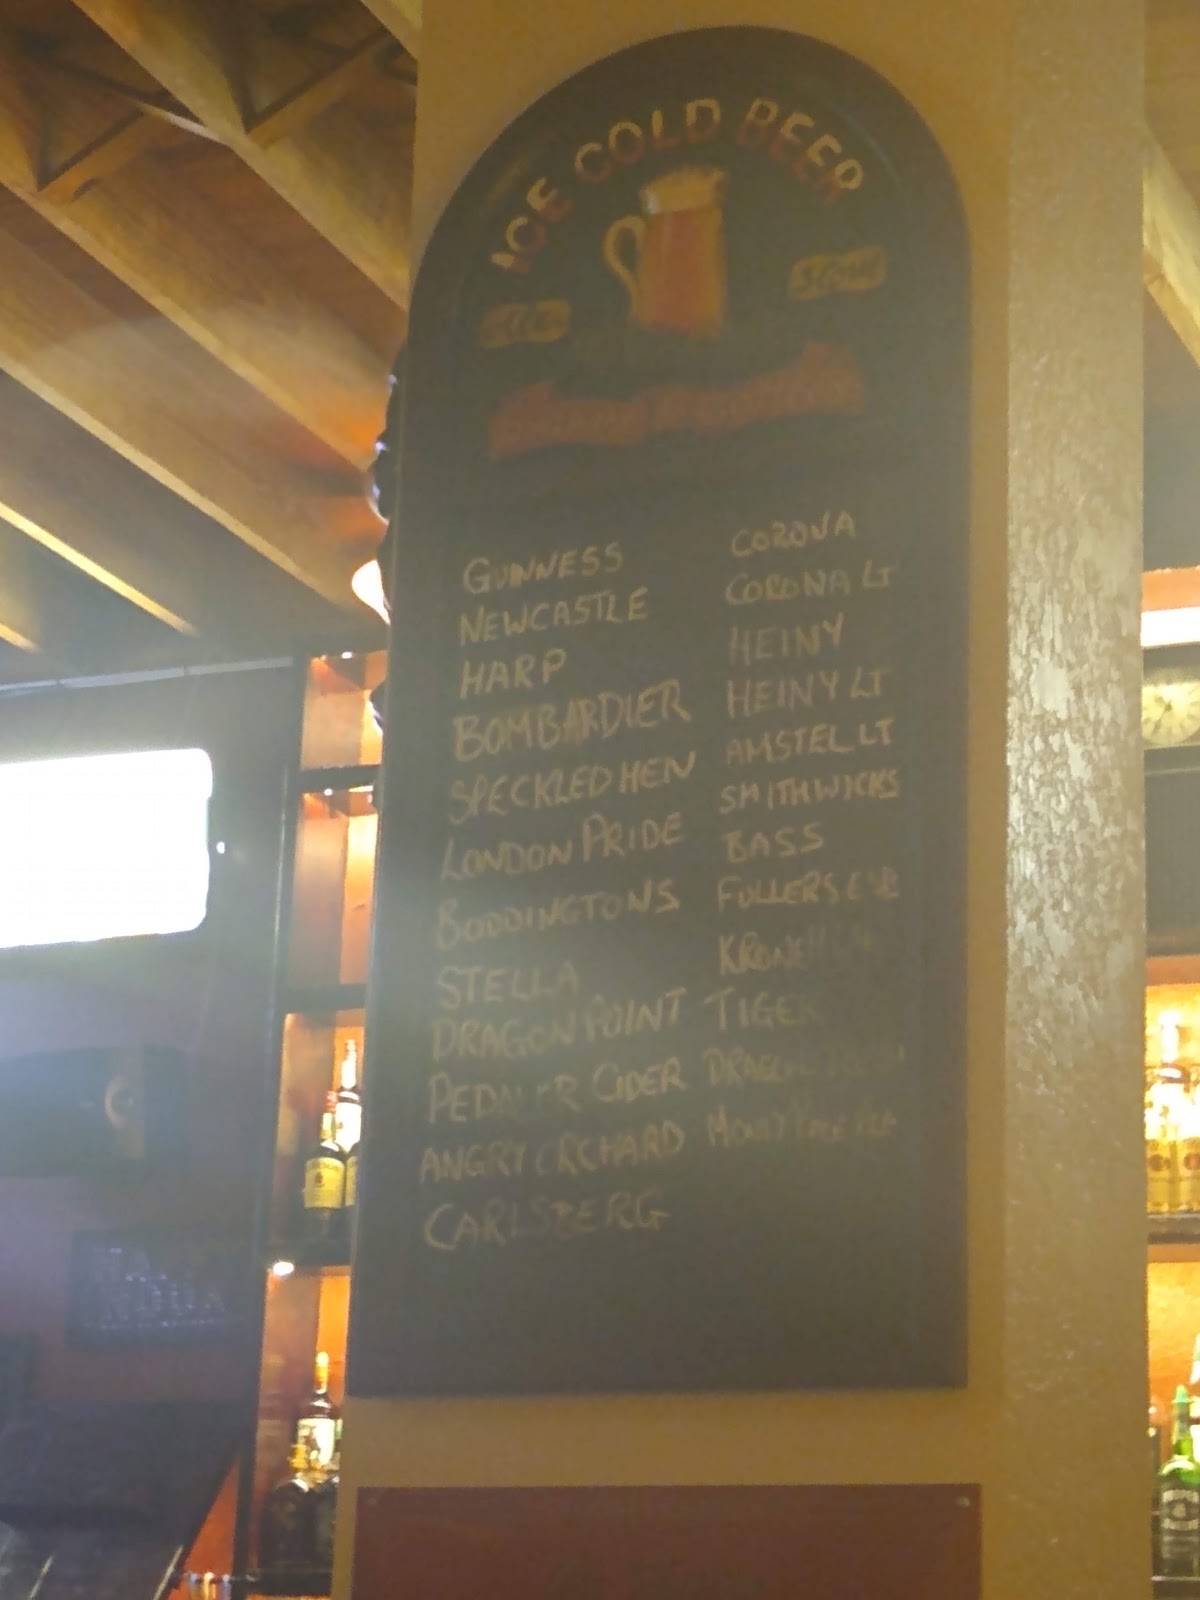 ICE COLD BEER
GUINNESS
NEWCASTLE
HARP
BOMBARDIER
SPECKLED HEN
LONDON PRIDE
BODDINGTONS
STELLA
DRAGON POINT
CIDER
ANGRY ORCHARD
CARLSBERG
CORONA
CORONA LT
HEINY
HEINY LT
AMSTEL LT
SMITHWICKS
BASS
FULLERS
TIGER